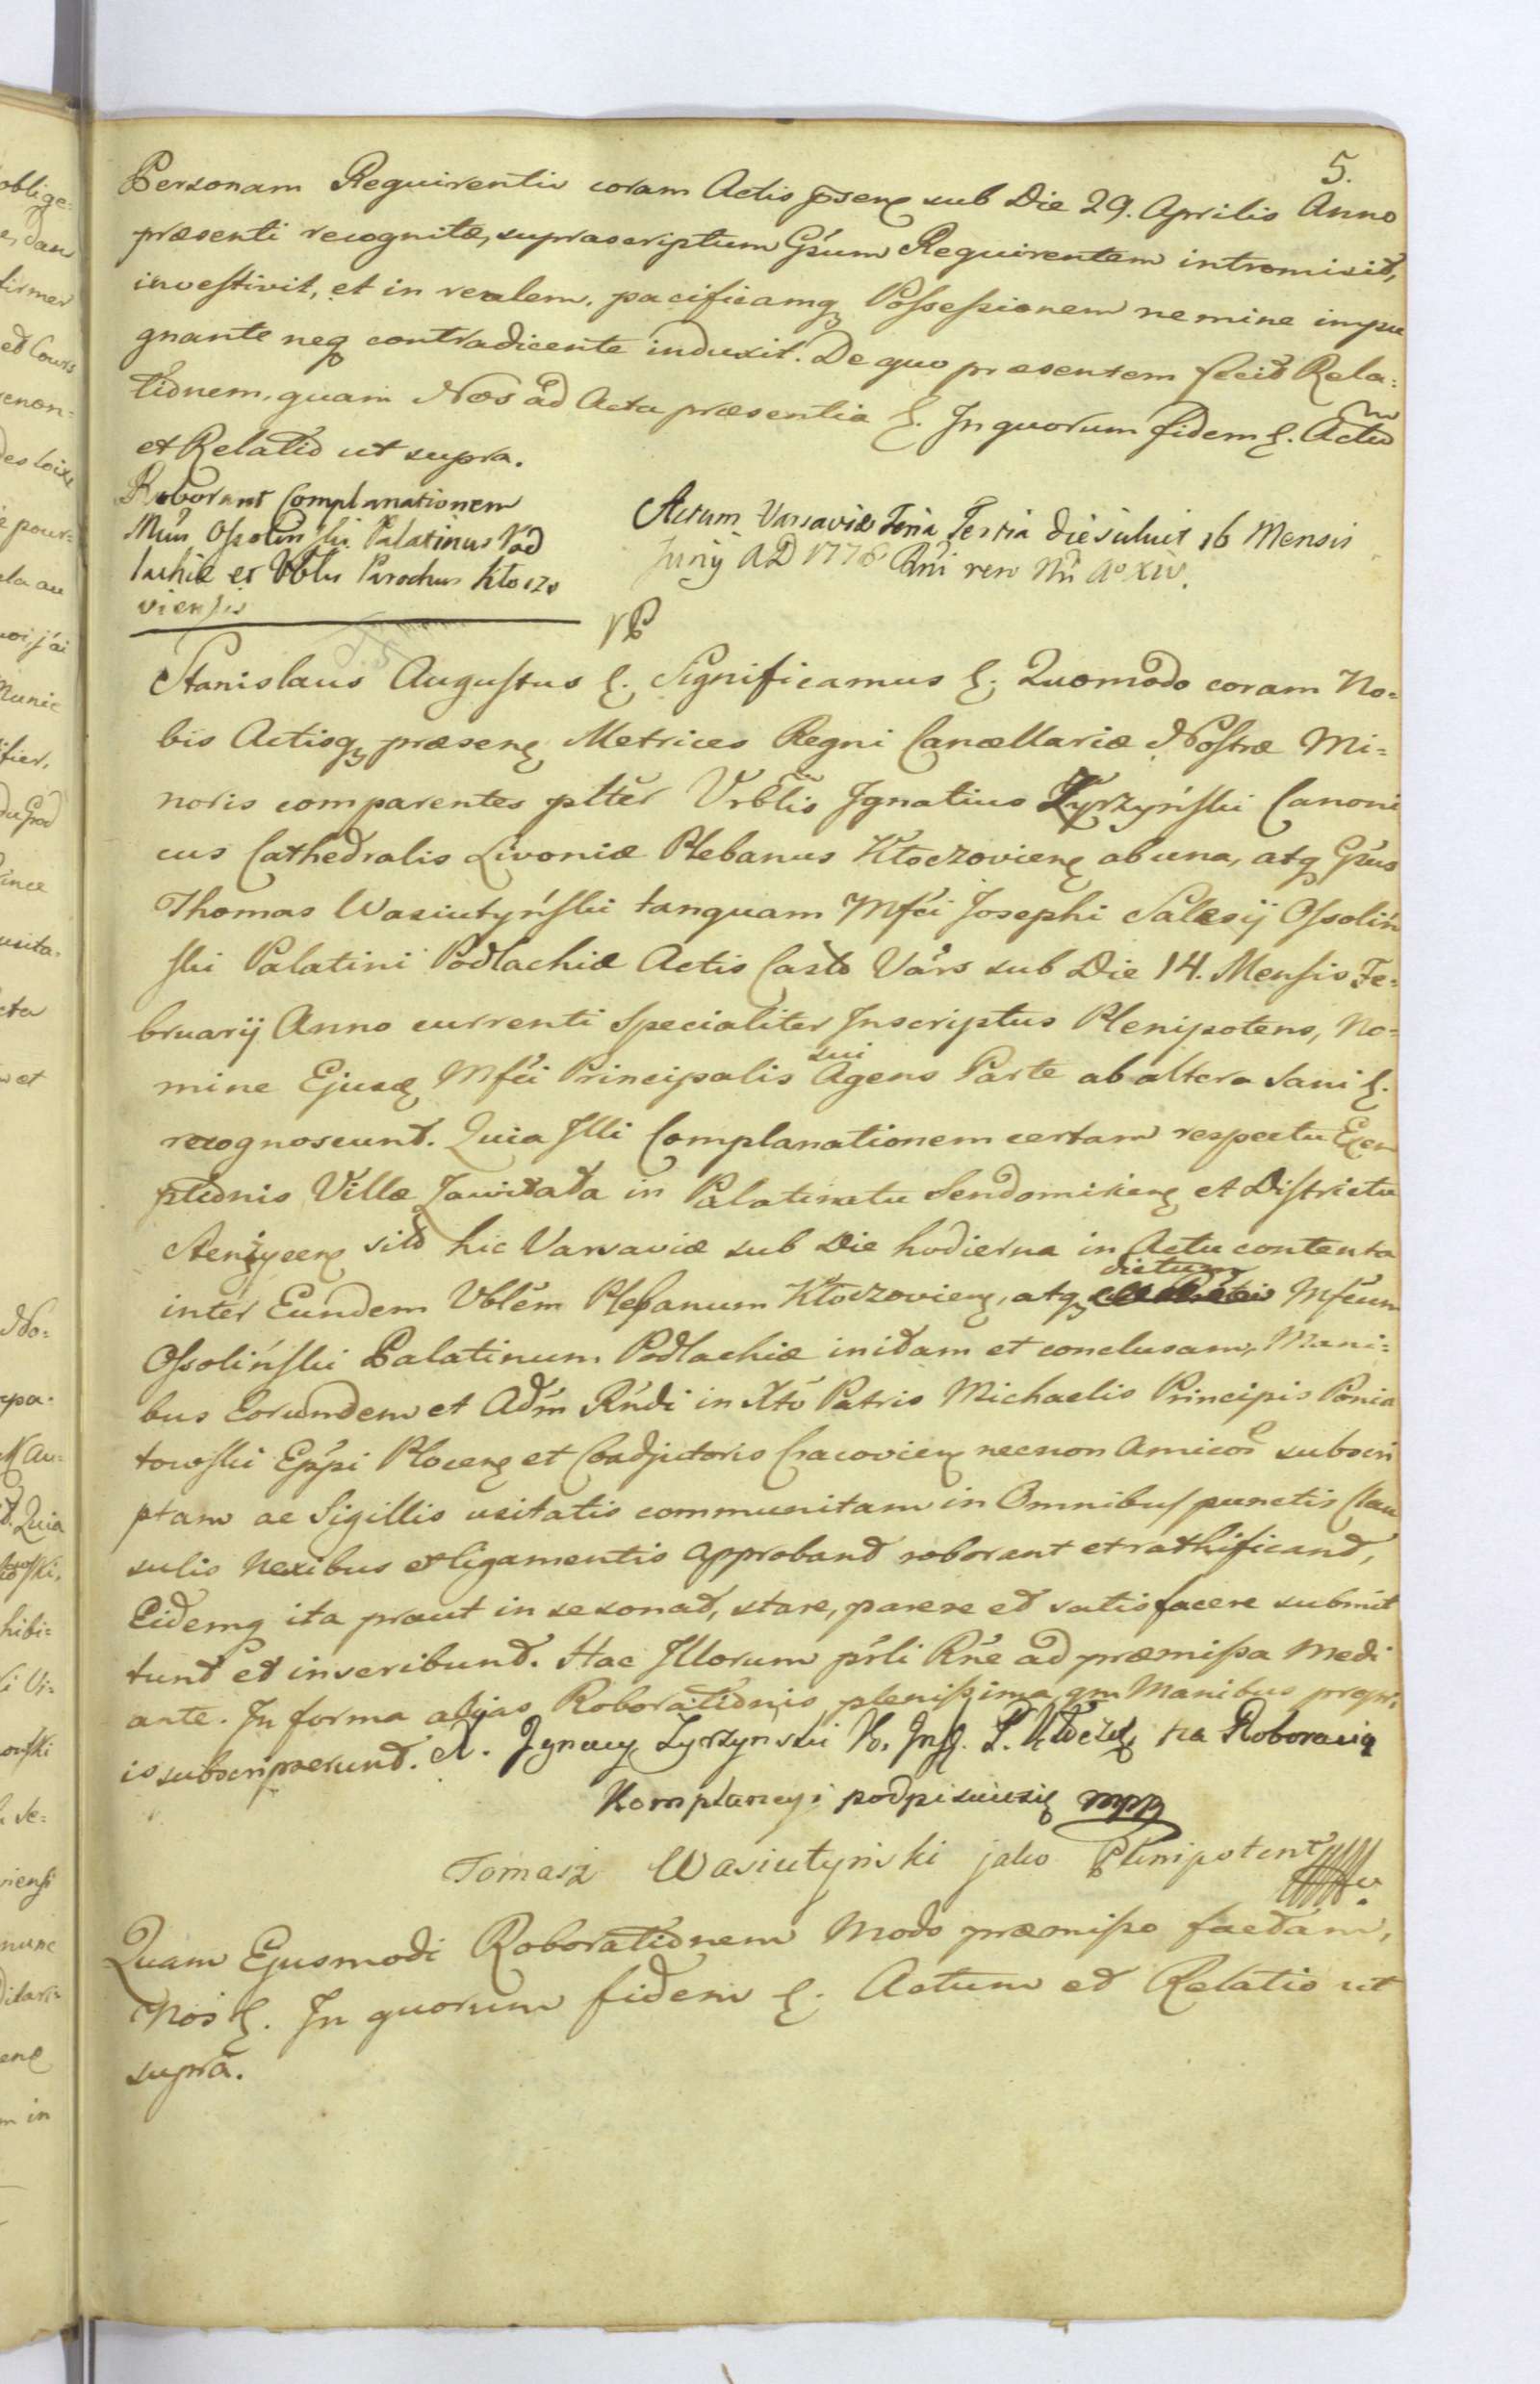 5.
Personam Requirentis coram Actis psenę sub Die 29. Aprilis Anno
præsenti recognitæ, suprascriptum Gsum Requirentem intromisit,
investivit, et in realem, pacificamq Possessionem nemine impu
gnante neq contradicente induxit. De quo præsentem fecit Rela:
tionem, quam Nos ad Acta præsentia &. In quorum fidem &. Actu
et Relatio ut supra.
Roborant Complanationem
Mfus Ossolinski Palatinus Pod
lachiæ et Vblis Parochus Kłoczo
viensis
Actum Varsaviæ Feria Tertia die 16 Mensis
Junij AD 177 Rni ren Nri Ao XIV.
Stanislaus Augustus &. Significamus &. Quomodo coram No=
bis Actisq præsenę Metrices Regni Cancellariæ Nostræ Mi=
noris comparentes plter Vrblis Ignatius Zyrzyński Canoni
cus Cathedralis Livoniæ Plebanus Kłoczovienę ab una, atq Gsus
Thomas Wasiutyński tanquam Mfci Josephi Salesij Ossoliń
ski Palatini Podlachiæ Actis Casto Vars sub Die 14. Mensis Fe=
bruarij Anno currenti Specialiter Inscriptus Plenipotens, No=
mine Ejusq Mfci Principalis sui Agens Parte ab altera Sani &.
recognoscunt. Quia Illi Complanationem certam respectu Exem
ptionis Villæ Zawitała in Palatinatu Sendomirienę et Districtu
Stenżycenę sitæ hic Varsaviæ sub Die hodierna in Actu contenta
inter Eundem Vblem Plebanum Kłoczovienę, atq dictum Mfcum
Ossoliński Palatinum Podlachiæ initam et conclusam, Mani=
bus Eorundem et Adm Rndi in Xto Patris Michaelis Principis Ponia
towski Eppi Plocenę et Coadjutoris Cracovienę necnon Amicor subscri
ptam ac Sigillis usitatis communitam in Omnibus punctis Clau
sulis Nexibus et ligamentis approband roborant et rathificand,
Eidemq ita prout in se sonat, stare, parere et satisfacere submit
tunt et inscribunt. Hac Illorum prli Rne ad præmissa Medi
ante. In forma alias Roborationis plenissima qm Manibus propri
is subscripserunt. X. Ignacy Zyrzynski K. Infl. P. Kłocz na Roboracią
Komplanacyi podpisuiesię mpp
Tomasz Wasiutynski jako Plenipotent
Quam Ejusmodi Roborationem Modo præmisso factam,
Nos &. In quorum fidem &. Actum et Relatio ut
supra.